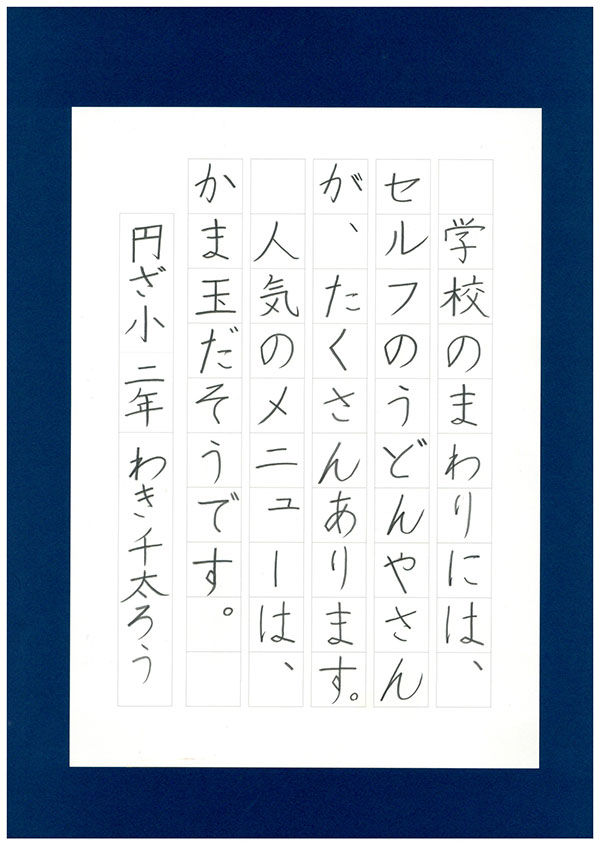 学校のまわりには、
セルフのうどんやさん
が、たくさんあります。
人気のメニューは、
かま玉だそうです。
円ざ小 二年 わき千太ろう